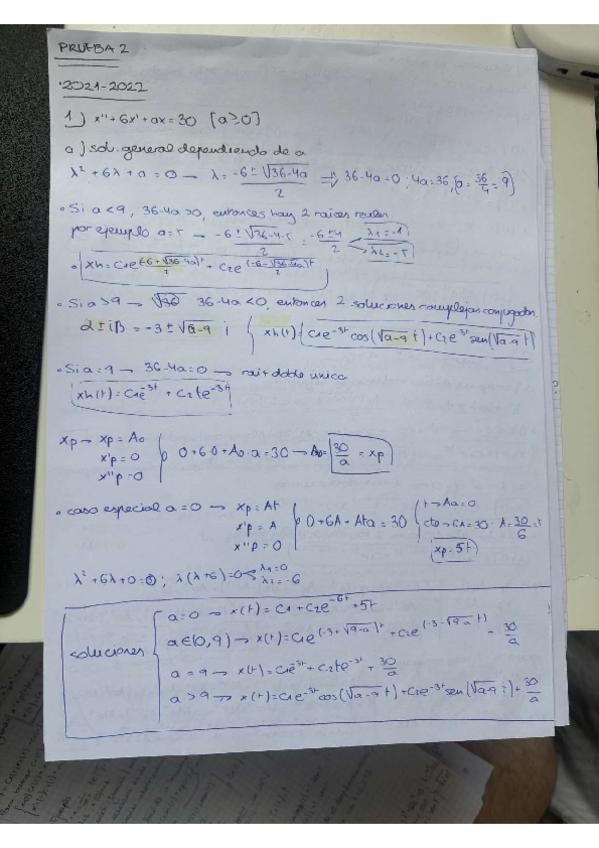 PRUEBA 2
·2021-2022
1) x''+6x'+ax=30 [a≥0]
a) sol. general dependiendo de a
λ²+6λ+a=0 → λ = (-6±√(36-4a))/2 ⇒ 36-4a=0; 4a=36, (a=36/4=9)
• Si a<9, 36-4a>0, entonces hay 2 raices reales
por ejemplo a=5 → (-6±√(36-4·5))/2 = (-6±4)/2 λ1=-1 λ2=-5
• xh=C1e^((-6+√(36-4a))/2 t) + C2e^((-6-√(36-4a))/2 t)
• Si a>9 → 36-4a<0, entonces 2 soluciones complejas conjugadas
α±iβ=-3±√(a-9) i { xh(t) { C1e^(-3t) cos(√(a-9) t)+C2e^(-3t) sen(√(a-9) t)
• Si a=9 → 36-4a=0 → raiz doble unica
xh(t)=C1e^(-3t) + C2te^(-3t)
xp → xp=A0
x'p=0
x''p=0
0+6·0+A0·a=30 → A0= 30/a = xp
• caso especial a=0 → xp=At
x'p=A
x''p=0
0+6A+Ata=30
t→Aa=0
cte→6A=30 A=30/6
xp=5t
λ²+6λ+0=0; λ(λ+6)=0 λ1=0 λ2=-6
soluciones
a=0 → x(t)=C1+C2e^(-6t)+5t
a∈(0,9) → x(t)=C1e^((-3+√(9-a))t)+C2e^((-3-√(9-a))t) + 30/a
a=9 → x(t)=C1e^(-3t)+C2te^(-3t)+30/a
a>9 → x(t)=C1e^(-3t)cos(√(a-9) t)+C2e^(-3t)sen(√(a-9) t)+30/a